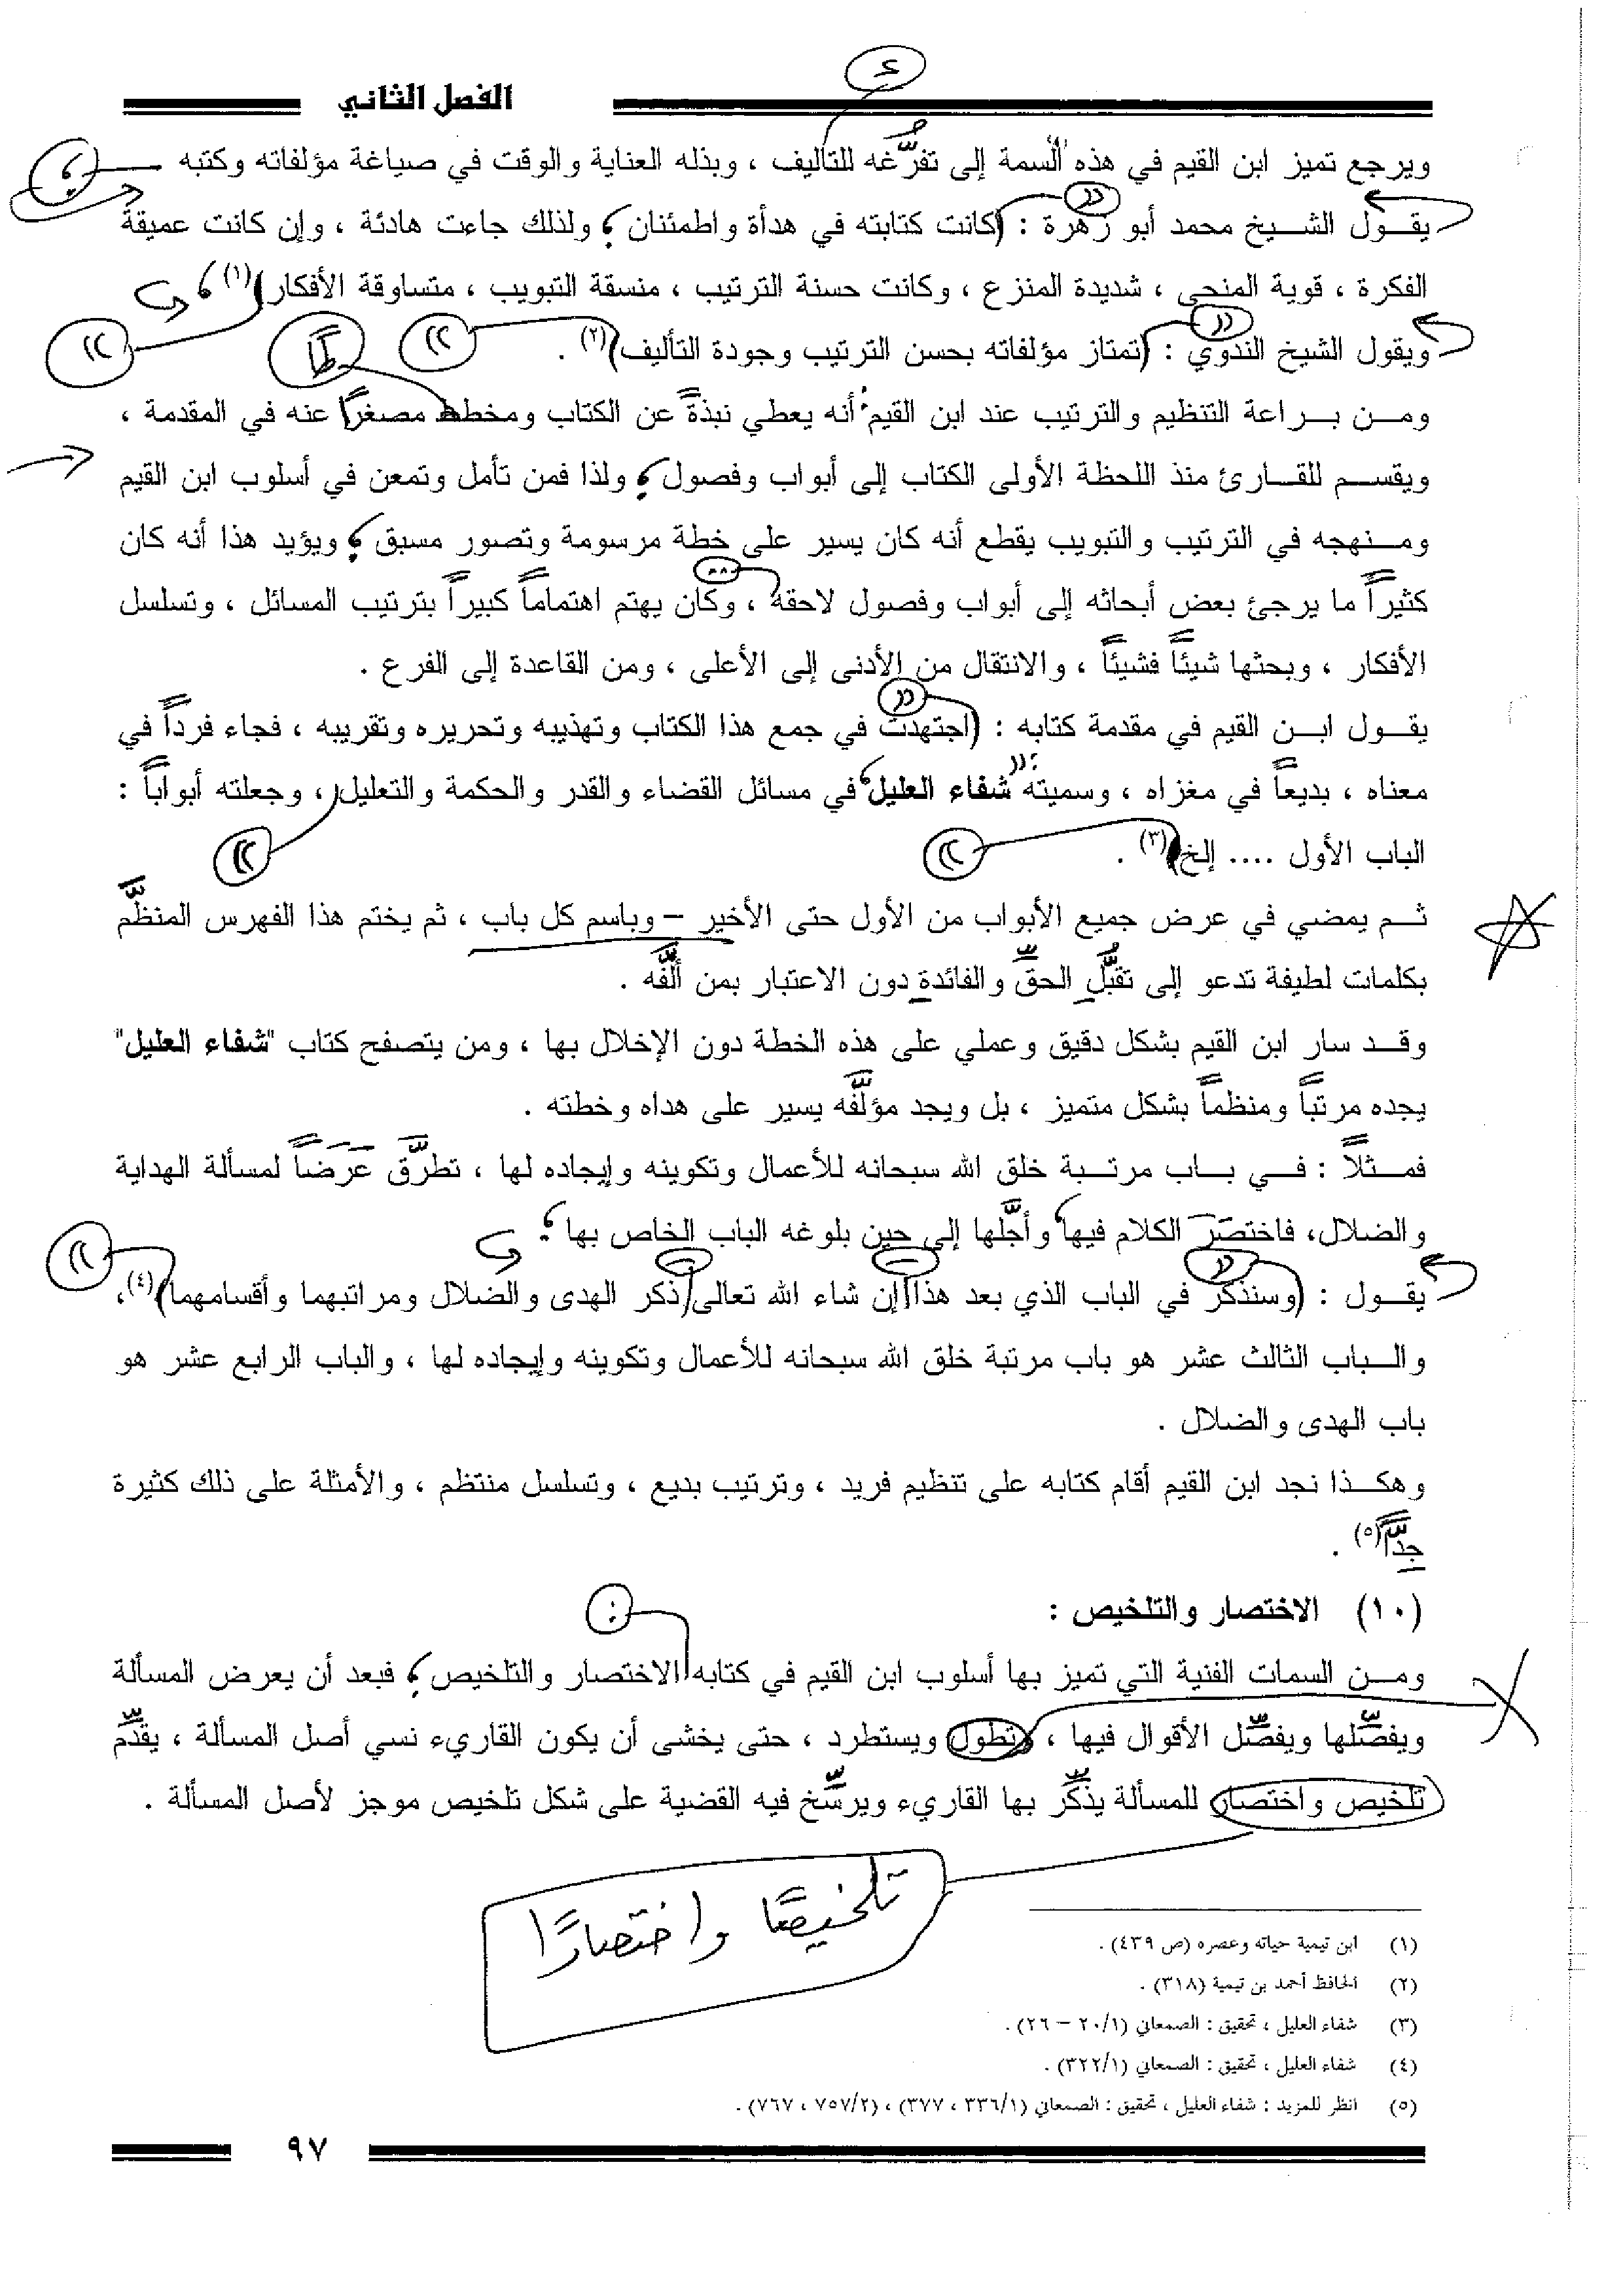 الفصل الثاني
ء
ويرجع تميز ابن القيم في هذه السمة إلى تفرُّغه للتأليف ، وبذله العناية والوقت في صياغة مؤلفاته وكتبه
يقول الشيخ محمد أبو زهرة : (كانت كتابته في هدأة واطمئنان ؛ ولذلك جاءت هادئة ، وإن كانت عميقة
الفكرة ، قوية المنحى ، شديدة المنزع ، وكانت حسنة الترتيب ، منسقة التبويب ، متساوقة الأفكار)(١) ،
ويقول الشيخ الندوي : (تمتاز مؤلفاته بحسن الترتيب وجودة التأليف)(٢) .
طاً
ومن براعة التنظيم والترتيب عند ابن القيم: أنه يعطي نبذةً عن الكتاب ومخطط مصغراً عنه في المقدمة ،
ويقسم للقارئ منذ اللحظة الأولى الكتاب إلى أبواب وفصول ؛ ولذا فمن تأمل وتمعن في أسلوب ابن القيم
ومنهجه في الترتيب والتبويب يقطع أنه كان يسير على خطة مرسومة وتصور مسبق ؛ ويؤيد هذا أنه كان
كثيراً ما يرجئ بعض أبحاثه إلى أبواب وفصول لاحقه ، وكان يهتم اهتماماً كبيراً بترتيب المسائل ، وتسلسل
الأفكار ، وبحثها شيئاً فشيئاً ، والانتقال من الأدنى إلى الأعلى ، ومن القاعدة إلى الفرع .
يقول ابن القيم في مقدمة كتابه : (اجتهدت في جمع هذا الكتاب وتهذيبه وتحريره وتقريبه ، فجاء فرداً في
معناه ، بديعاً في مغزاه ، وسميته: شفاء العليل في مسائل القضاء والقدر والحكمة والتعليل ، وجعلته أبواباً :
الباب الأول .... إلخ)(٣) .
ثم يمضي في عرض جميع الأبواب من الأول حتى الأخير – وباسم كل باب ، ثم يختم هذا الفهرس المنظَّم
بكلمات لطيفة تدعو إلى تقبُّل الحقِّ والفائدة دون الاعتبار بمن ألَّفه .
وقد سار ابن القيم بشكل دقيق وعملي على هذه الخطة دون الإخلال بها ، ومن يتصفح كتاب "شفاء العليل"
يجده مرتباً ومنظماً بشكل متميز ، بل ويجد مؤلِّفه يسير على هداه وخطته .
فمثلاً : في باب مرتبة خلق الله سبحانه للأعمال وتكوينه وإيجاده لها ، تطرَّق عَرَضاً لمسألة الهداية
والضلال، فاختصَرَ الكلام فيها، وأجَّلها إلى حين بلوغه الباب الخاص بها ؛
يقول : (وسنذكر في الباب الذي بعد هذا إن شاء الله تعالى ذكر الهدى والضلال ومراتبهما وأقسامهما)(٤)،
والباب الثالث عشر هو باب مرتبة خلق الله سبحانه للأعمال وتكوينه وإيجاده لها ، والباب الرابع عشر هو
باب الهدى والضلال .
وهكذا نجد ابن القيم أقام كتابه على تنظيم فريد ، وترتيب بديع ، وتسلسل منتظم ، والأمثلة على ذلك كثيرة
جدًّا(٥) .
(١٠) الاختصار والتلخيص :
ومن السمات الفنية التي تميز بها أسلوب ابن القيم في كتابه الاختصار والتلخيص ؛ فبعد أن يعرض المسألة
ويفصِّلها ويفصِّل الأقوال فيها ، وتطول ويستطرد ، حتى يخشى أن يكون القاريء نسي أصل المسألة ، يقدِّم
تلخيص واختصار للمسألة يذكِّر بها القاريء ويرسِّخ فيه القضية على شكل تلخيص موجز لأصل المسألة .
تلخيصًا واختصارًا
(١) ابن تيمية حياته وعصره (ص ٤٣٩) .
(٢) الحافظ أحمد بن تيمية (٣١٨) .
(٣) شفاء العليل ، تحقيق : الصمعاني (٢٠/١ – ٢٦) .
(٤) شفاء العليل ، تحقيق : الصمعاني (٣٢٢/١) .
(٥) انظر للمزيد : شفاء العليل ، تحقيق : الصمعاني (٣٣٦/١ ، ٣٧٧) ، (٧٥٧/٢ ، ٧٦٧) .
٩٧